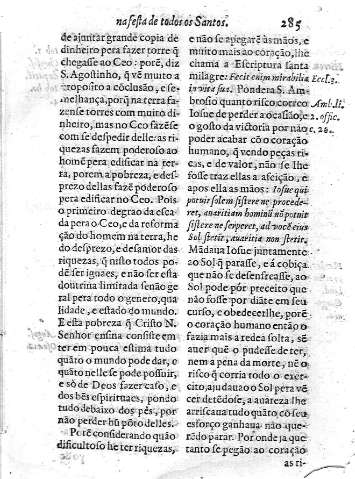 na festa de todos os Santos. 285
de ajuntar grande copia de
dinheiro pera fazer torre q̃
chegasse ao Ceo: porẽ, diz
S. Agostinho, q̃ vẽ muito a
proposito a cõclusão, e se-
melhança, porq̃ na terra fa-
zense torres com muito di-
nheiro, mas no Ceo fazẽse
com se despedir delle: as ri-
quezas fazem poderoso ao
homẽ pera edificar na ter-
ra, porem a pobreza, e des-
prezo dellas fazẽ poderoso
pera edificar no Ceo. Pois
o primeiro degrao da esca-
da pera o Ceo, e da reforma
ção do homem na terra, he
do desprezo, e desamor das
riquezas, q̃ nisto todos po-
dẽ ser iguaes, e não ser esta
doutrina limitada senão ge
ral pera todo o genero, qua
lidade, e estado do mundo.
E esta pobreza q̃ Cristo N.
Senhor ensina consiste em
ter em pouca estima tudo
quãto o mundo pode dar, e
quãto nelle se pode possuir,
e só de Deos fazer caso, e
dos bẽs espirituaes, pondo
tudo debaixo dos pès, por
não perder hũ põro delles.
Porẽ considerando quão
dificultoso he ter riquezas,
e não se apegarẽ ás mãos, e
muito mais ao coração, lhe
chama a Escriptura santa
milagre: Fecit enim mirabilia
in vita sua. Pondera S. Am-
brosio quanto risco correo
Iosue de perder a ocasião, e
o gosto da victoria por não
poder acabar cõ o coração
humano, q̃ vendo peças ri-
cas, e de valor, não se lhe
fosse traz ellas a afeição, e
apos ella as mãos: Iosue qui
potuit solem sistere ne procede-
ret, avaritiam hominũ nõ potuit
sistere ne serperet, ad vocẽ eius
Sol stetit, avaritia non stetit.
Mãdava Iosue juntamente
ao Sol q̃ parasse, e á cobiça
que não se desenfreasse, ao
Sol pode pór preceito que
não fosse por diãte em seu
curso, e obedecerlhe, porẽ
o coração humano então o
fazia mais a redea solta, sẽ
auer quẽ o pudesse deter,
nem a pena da morte, nẽ o
risco q̃ corria todo o exer-
cito, ajudaua o Sol pera vẽ
cer detẽdose, a auareza lhe
arriscaua tudo quãto cõ seu
esforço ganhaua não que-
rẽdo parar. Por onde ja que
tanto se pegão ao coração
as ri-
Eccl. 3.
Amb. li.
2. offic.
c. 26.